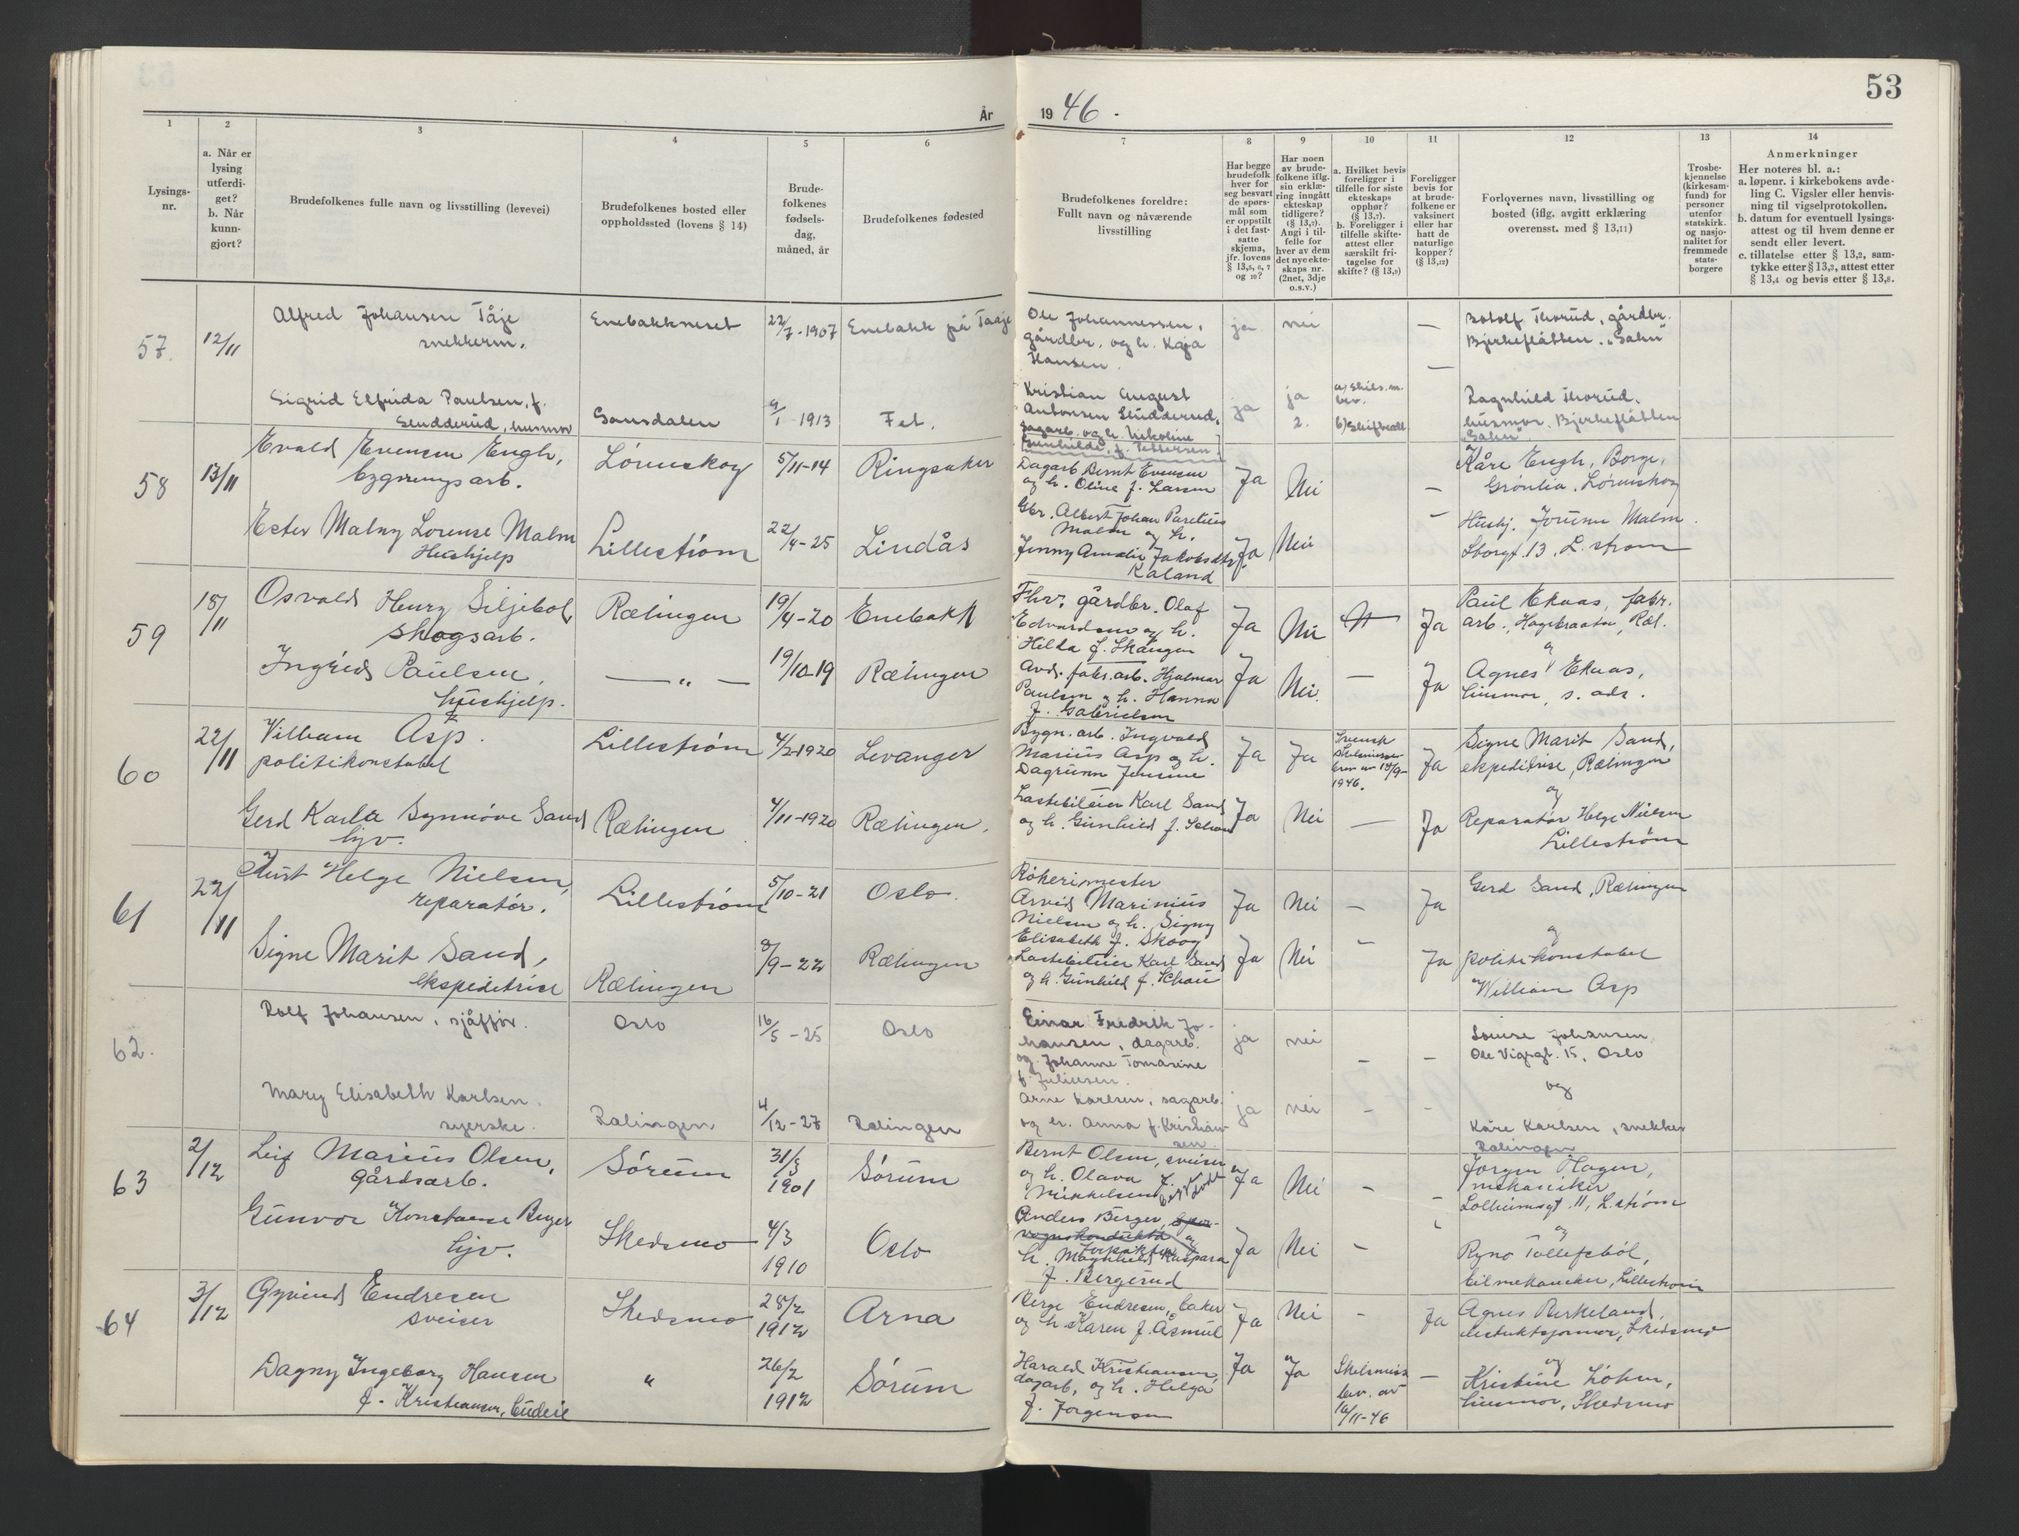 53
År 1946.
1
2
3
4
5
6
7
8
9
10
11
12
13
14
Lysings-
nr.
a. Når er
lysing
utferdi-
get?
b. Når
kunn-
gjort?
Brudefolkenes fulle navn og livsstilling (levevei)
Brudefolkenes bosted eller
oppholdssted (lovens § 14)
Brude-
folkenes
fødsels-
dag,
måned, år
Brudefolkenes fødested
Brudefolkenes foreldre:
Fullt navn og nåværende
livsstilling
Har begge
brudefolk
hver for
seg besvart
de spørs-
mål som
er oppstilt
i det fast-
satte
skjema,
jfr. lovens
§ 13,5, 6, 7
og 10?
Har noen
av brude-
folkene iflg.
sin erklæ-
ring inngått
ekteskap
tidligere?
(§ 13,7).
Angi i til-
felle for
hver av dem
det nye ekte-
skaps nr.
(2net, 3dje
o.s.v.)
a. Hvilket bevis
foreligger i
tilfelle for siste
ekteskaps
opphør?
(§ 13,7)
b. Foreligger i
tilfelle skifte-
attest eller
særskilt fri-
tagelse for
skifte? (§ 13,9)
Foreligger
bevis for
at brude-
folkene er
vaksinert
eller har
hatt de
naturlige
kopper?
(§ 13,12)
Forlovernes navn, livsstilling og
bosted (iflg. avgitt erklæring
overensst. med § 13,11)
Trosbe-
kjennelse
(kirkesam-
fund) for
personer
utenfor
statskirk.
og nasjo-
nalitet for
fremmede
stats-
borgere
Anmerkninger
Her noteres bl. a.:
a. løpenr. i kirkebokens avde-
ling C. Vigsler eller henvis-
ning til vigselprotokollen.
b. datum for eventuell lysings-
attest og til hvem denne er
sendt eller levert.
c. tillatelse etter § 13,2, sam-
tykke etter § 13,3, attest etter
§ 13,4 og bevis etter § 13,8.
57. 12/11 Alfred Johansen Tåje
snekkerm.
Enebakkneset 22/7-1907 Enebakk på Taaje
Ole Johannessen,
gårdbr. og h. Kaja
Hansen.
ja nei —
Botolf Thorud, gårdbr.
Bjerkeflåtten. "Gahn"
Sigrid Elfrida Paulsen, f.
Studderud, husmor
Gansdalen 9/1-1913 Fet.
Kristian August
Antonsen Studderud,
sagarb. og h. Nikoline
Gunhilde, f. Pettersen.
ja ja 2. a) Skils.m.
bev.
b) Skifteatt —
Ragnhild Thorud,
husmor. Bjerkeflåtten
"Gahn".
58 13/11 Evald Evensen Engh,
bygningsarb.
Lørenskog 5/11-14 Ringsaker
Dagarb Bernt Evensen
og h. Oline f. Larsen
Ja Nei —
Kåre Engh, Borge,
Grønlia, Lørenskog
Ester Malny Lorense Malm
Hushjelp
Lillestrøm 22/4-25 Lindås
Gbr. Albert Johan Parelius
Malm og h.
Jenny Amalie Jakobsdtr
Kaland
Ja Nei —
Hushj. Jorunn Malm.
Storgt. 13, L.strøm
59 18/11 Osvald Henry Siljebøl,
skogsarb.
Rælingen 19/4-20 Enebakk
Fhv. gårdbr. Olaf
Edvardsen og h.
Hilda f. Skaugen
Ja Nei Ja
Paul Ekaas, fabr.
arb., Hagebraaten, Ræl.
og
Ingrid Paulsen,
hushjelp.
— " — 19/10-19 Rælingen
Avd. fabr.arb. Hjalmar
Paulsen og h. Hanna
f. Gabrielsen
Ja Nei. — Ja
Agnes Ekaas,
husmor, s. ads.
60 22/11 Villiam Asp.
politikonstabel
Lillestrøm 4/2-1920 Levanger
Bygn. arb. Ingvald
Marius Asp og h.
Dagrunn Jensine
Ja Ja Svensk
Skilsmisse
brev av 18/9-
1946. Ja
Signe Marit Sand,
ekspeditrise, Rælingen
og
Gerd Karla Synnøve Sand
hjv.
Rælingen 4/11-1920 Rælingen.
Lastebileier Karl Sand
og h. Gunhild f. Schou
Ja Nei — Ja
Reparatør Helge Nielsen
Lillestrøm
61 22/11 Kurt Helge Nielsen,
reparatør.
Lillestrøm 5/10-21 Oslo.
Røkerimester
Arvid Marinius
Nielsen og h. Signy
Elisabeth f. Skoog
Ja Nei — Ja
Gerd Sand, Rælingen
og
Signe Marit Sand,
ekspeditrise
Rælingen 8/9-22 Rælingen
Lastebileier Karl Sand
og h. Gunhild f. Schou
Ja Nei — Ja
politikonstabel
William Asp
62. Rolf Johansen, sjåffør.
Oslo 16/5-25 Oslo
Einar Fredrik Jo-
hansen, dagarb.
og Johanne Tomasine
f. Juliusen.
ja nei — —
Louise Johansen,
Ole Vigsgt. 15, Oslo
og
Mary Elisabeth Karlsen.
syerske.
Rælingen 4/12-27 Rælingen
Arne Karlsen, sagarb.
og h. Anna f. Kristian-
sen.
ja nei — —
Kåre Karlsen, snekker
Rælingen
63 2/12 Leif Marius Olsen,
gårdsarb.
Sørum 31/3
1901 Sørum
Bernt Olsen, sveiser
og h. Olava f.
Mikkelsen begge døde
Ja Nei — —
Jørgen Hagen,
mekaniker
Solheimsgt. 11, L.strøm
og
Gunvor Konstanse Berger
hjv.
Skedsmo 4/3
1910 Oslo
Anders Berger, spor-
vognskonduktør og
forpakter
h. Magnhild Kaspara
f. Bergerud
Ja Nei —
Ryno Tollefsbøl,
bilmekaniker, Lillestrøm
64 3/12 Øyvind Endresen
sveiser
Skedsmo 28/2
1912 Arna
Berge Endresen, baker
og h. Karen f. Åsmul
Ja Nei — Ja
Agnes Berkeland,
Skedsmo
og
Dagny Ingeborg Hansen
f. Kristiansen, budeie
" 26/2
1912 Sørum
Harald Kristiansen,
dagarb, og h. Helga
f. Jørgensen
Ja Ja Skilsmiss
bev. av
16/11-46 —
Kristine Løken,
husmor, Skedsmo